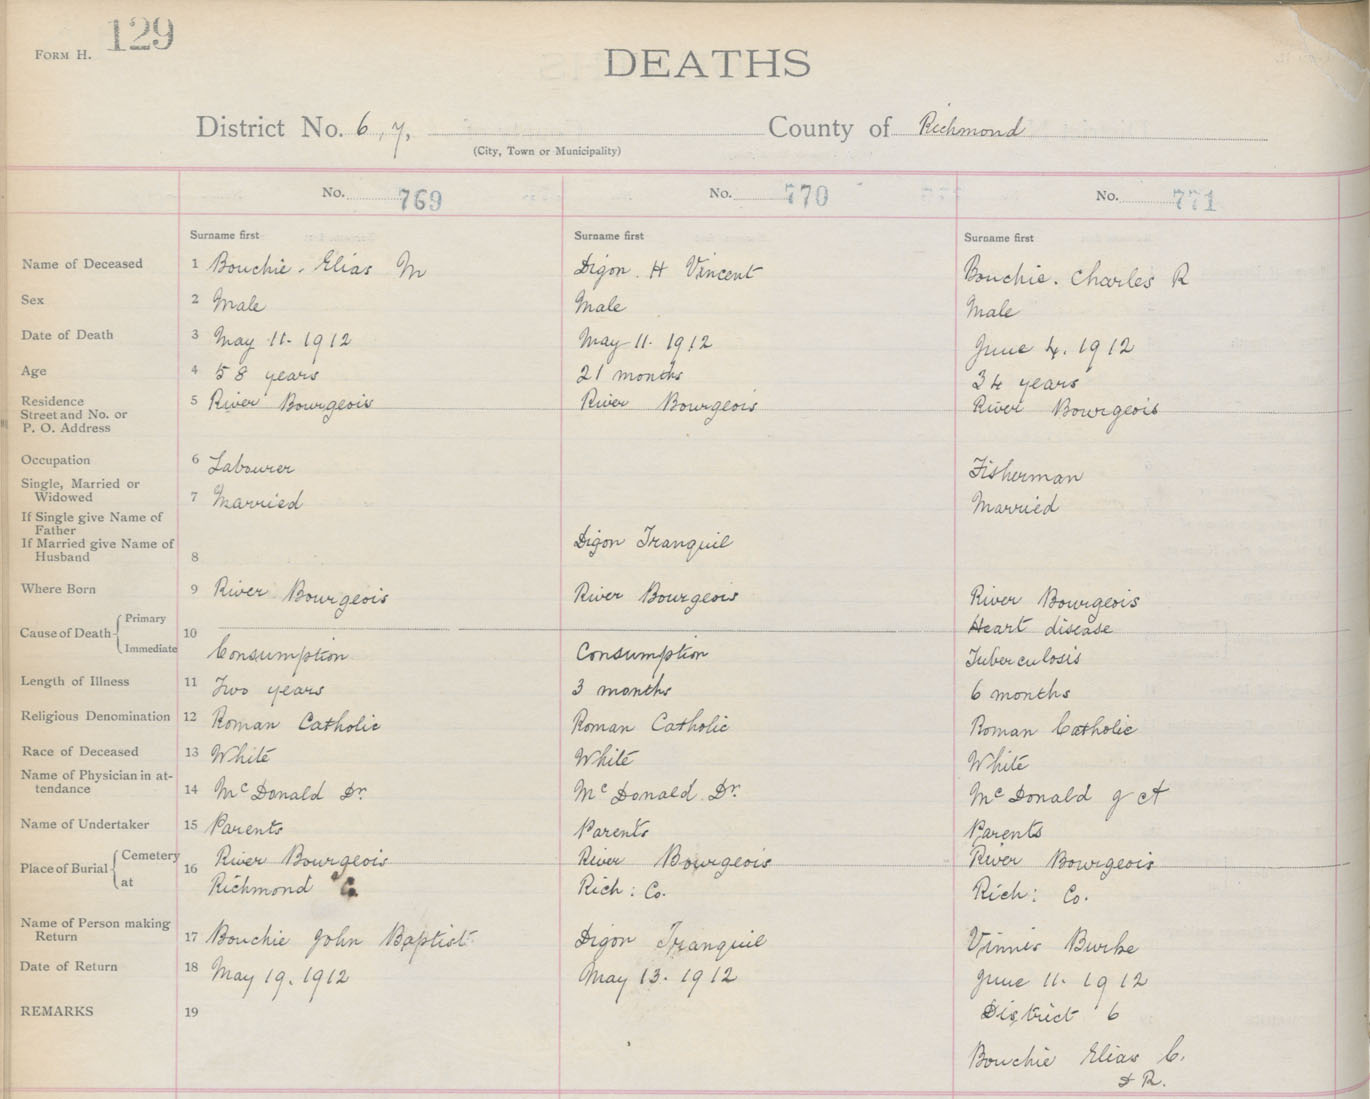 FORM H. 129
DEATHS
District No. 6, 7, County of Richmond
(City, Town or Municipality)
No. 769 No. 770 No. 771
Surname first Surname first Surname first
Name of Deceased 1 Bouchie. Elias M Digon. H Vincent Bouchie. Charles R
Sex 2 Male Male Male
Date of Death 3 May 11. 1912 May 11. 1912 June 4. 1912
Age 4 58 years 21 months 34 years
Residence
Street and No. or
P. O. Address 5 River Bourgeois River Bourgeois River Bourgeois
Occupation 6 Labourer Fisherman
Single, Married or
Widowed 7 Married Married
If Single give Name of
Father
If Married give Name of
Husband 8 Digon Tranquil
Where Born 9 River Bourgeois River Bourgeois River Bourgeois
Cause of Death 10 Primary Heart disease
Immediate Consumption Consumption Tuberculosis
Length of Illness 11 Two years 3 months 6 months
Religious Denomination 12 Roman Catholic Roman Catholic Roman Catholic
Race of Deceased 13 White White White
Name of Physician in at-
tendance 14 McDonald Dr. McDonald. Dr. McDonald
Name of Undertaker 15 Parents Parents Parents
Place of Burial 16 Cemetery River Bourgeois River Bourgeois River Bourgeois
at Richmond Co. Rich: Co. Rich: Co.
Name of Person making
Return 17 Bouchie John Baptist Digon Tranquil Vinnis Burke
Date of Return 18 May 19. 1912 May 13. 1912 June 11. 1912
REMARKS 19 District 6
Bouchie Elias C.
& R.